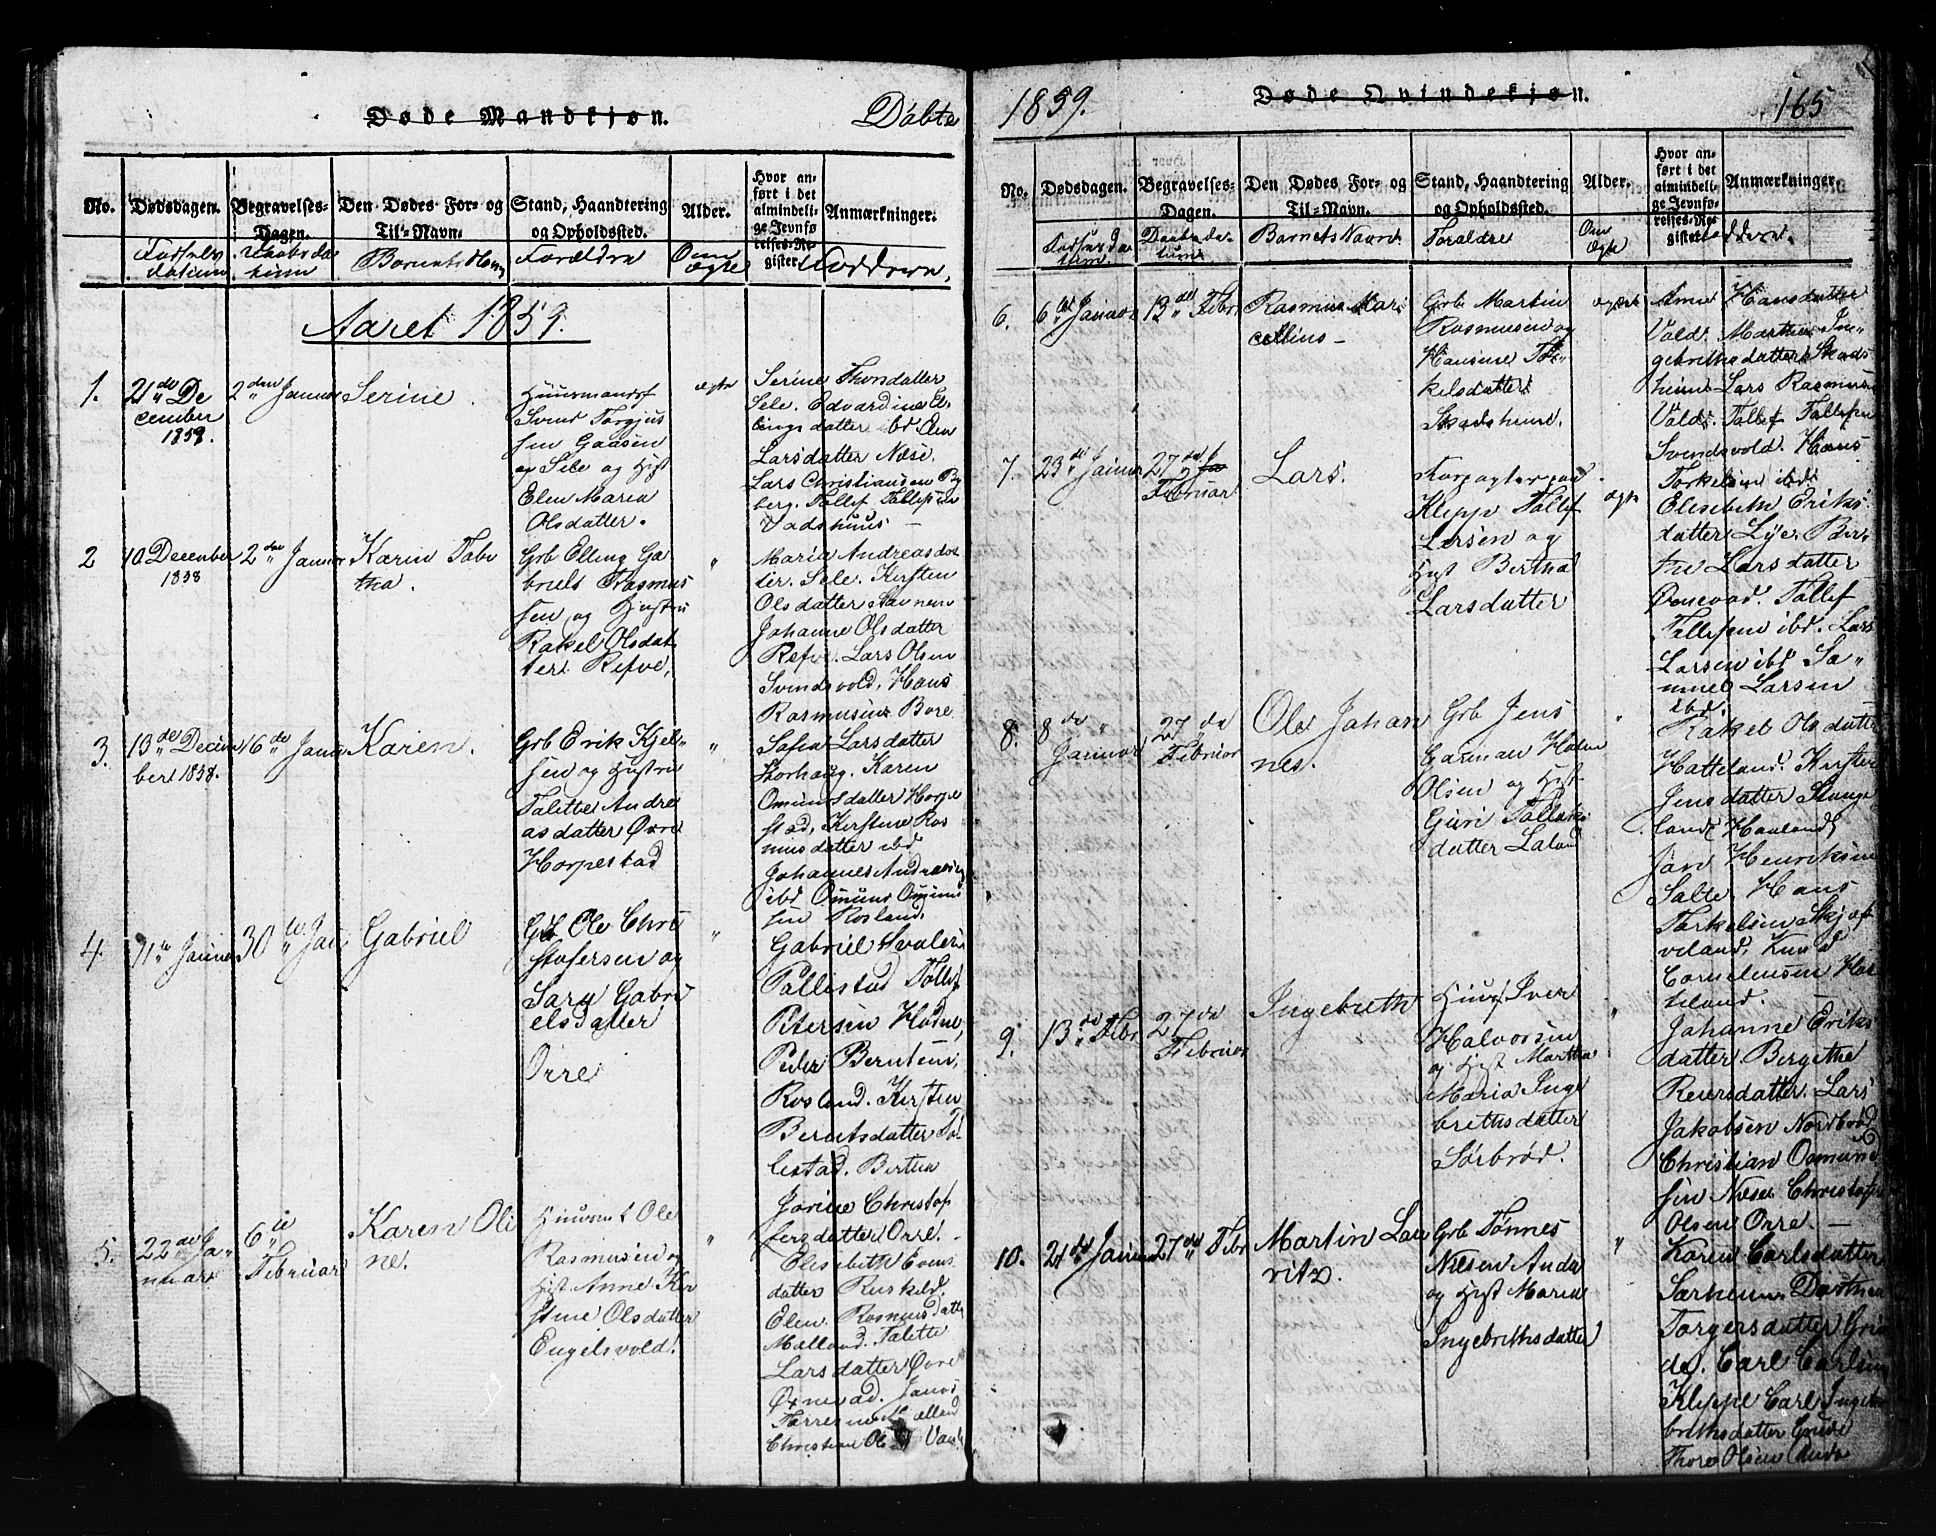 Døde Mandkjøn.
Døbte
No.
Dødsdagen.
Begravelses-
Dagen.
Den Dødes For- og
Til-Navn.
Stand, Haandtering
og Opholdssted.
Alder.
Hvor an-
ført i det
almindeli-
ge Jevnfø
relses-Re-
gister.
Anmærkninger.
Forældre
Om
ægte
Fadderne,
Aaret 1859.
1.
21de De
cember
1858.
2den Januar
Serine.
Huusmand
Svend Torgjus
sen Gaasen
og Sele og Hust
Elen Maria
Olsdatter.
ægte
Serine Thorsdatter
Sele. Edvardine El-
lingsdatter ibd Elen
Larsdatter Næse.
Lars Christiansen By
berg. Tollef Tollefsen
Vadshuus —
2
10 December
1858
2den Januar
Karen Tabi
tha.
Grb Elling Ga
briels Rasmus
sen og Hustru
Rakel Olsdat
ter Refve,
"
Maria Andreasdat
ter. Sele. Kirsten
Olsdatter
Johanne Olsdatter
Refve. Lars Olsen
Svendsvold, Hans
Rasmusen Bore
3.
13de Decem
ber 1858.
16de Janu
Karen.
Grb Erik Kjel-
sen og Hustru
Talette Andre
asdatter Øvre
Horpestad
"
Larsdatter
Storhaug. Karen
Omundsdatter Horpe
stad, Kirstine Ras
musdatter ibd
Johannes Andreasen
ibd Omund Omund
sen Rosland.
4.
11te Januar
30te Jan
Gabriel
Grb Ole Chri
stofersen og
Sara Gabri
elsdatter
Orre
"
Gabriel
Pollestad Tollef
Petersen Hodne,
Peder Berntsen,
Rosland. Kirsten
Berntsdatter Pol
lestad. Bertha
Jorine Christof
fersdatter Orre. -
5.
22de Ja-
nuar
6te
Februar
Karen Oli
ne.
Huusmd Ole
Rasmusen og
Hust Anne Kir
stine Olsdatter
Engelsvold.
"
Elisabeth Evens
datter
Elen Rasmusdatter
Talette
Larsdatter Øvre
Øxnevad. Jonas
Christian
1859.
Døde Qvindekjøn.
165
No.
Dødsdagen.
Begravelses-
Dagen.
Den Dødes For- og
Til-Navn.
Stand, Haandtering
og Opholdssted.
Alder.
Hvor an-
ført i det
almindeli-
ge Jevnfø-
relses-Re-
gister.
Anmærkninger.
Barnets Navn.
Forældre
Om
Ægte
6.
6te Januar
13de Febr
Rasmus Mar
cellius -
Grb Martin
Rasmusen og
Hansine Tor-
kelsdatter
Skadsheim.
ægte
Hansdatter
Vold. Marthe In-
gebrethsdatter Skads
heim Lars Rasmusen
Vold. Tollef Tollefsen
Svendsvold. Hans
Torkelsen ibd.
7.
23de Januar
27de
Februar
Lars.
Klepp Tollef
Larsen og
Hust Bertha
Larsdatter
ægte
Elisabeth Eriks
datter Lye. Ber-
the Larsdatter
Øxnevad. Tollef
Tollefsen ibd. Lars
Larsen ibd Sa-
muel Larsen
ibd.
8.
8de
Januar
27de
Februar
Ole Johan
nes.
Grb Jens
Garman
Olsen og Hust
Guri Tollaks
datter Laland
"
Rakel Olsdatter
Hatteland. Kirsten
Jensdatter Stange
land Haaland
Henriksen
Salte. Hans
Torkelsen Skjæf
veland. Knud
Corneliussen Hat
teland.
9.
13de Febr
27de
Februar
Ingebreth
Huusm Iver
Halvorsen
og Hust Martha
Maria Inge
brethsdatter
Sørbrød.
"
Johanne Eriks
datter. Bergithe
Reiersdatter. Lars
Jakobsen Nordbrød
Christian Osmund
sen Næse Christofer
Olsen Orre. —
10.
21de Januar
27de Febr
Martin Lau
ritz.
Grb Tønnes
Nilsen Anda
og Hust Maria
Ingebrithsdatter
"
Karen Carlsdatter
Særheim. Dorthea
Torgersdatter Gru
de. Carl Carlsen
Kleppe Carl Ingeb
brithsdatter Grude
Thore Olsen Anda